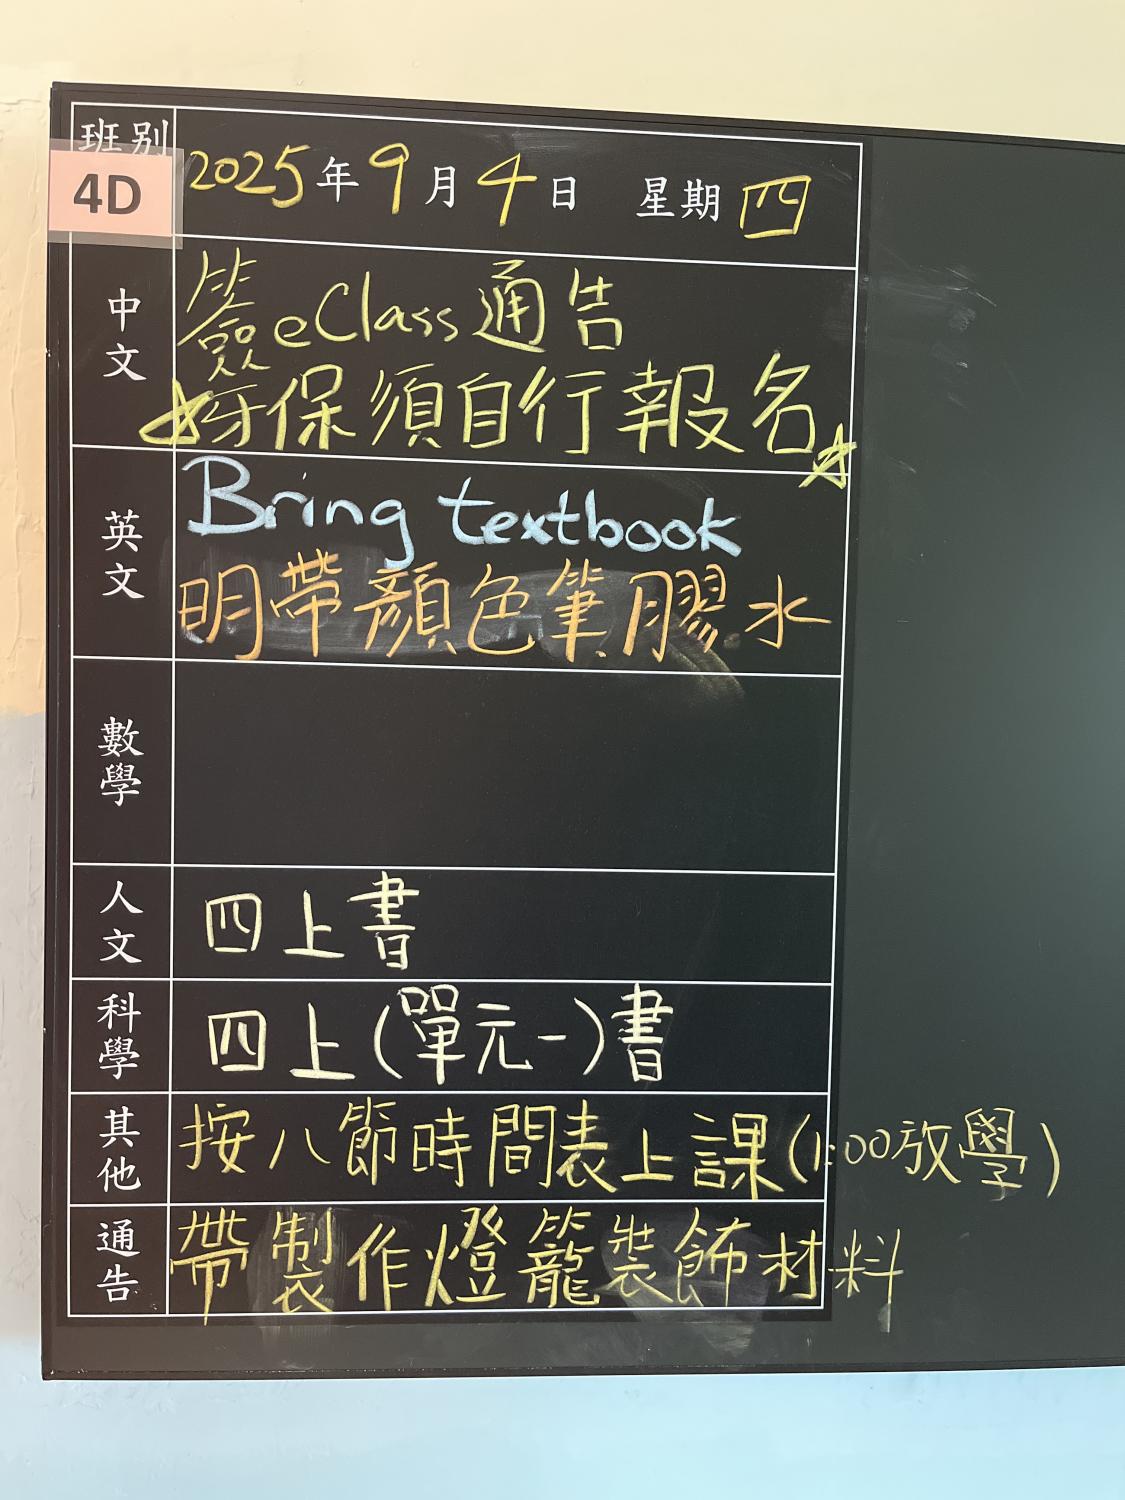 班別 4D
2025年9月4日 星期四
中文
簽eClass通告
☆牙保須自行報名☆
英文
Bring textbook
明帶顏色筆膠水
數學
人文
四上書
科學
四上(單元一)書
其他
按八節時間表上課(1:00放學)
通告
帶製作燈籠裝飾材料